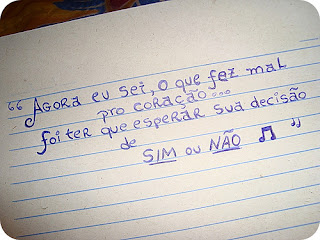 “Agora eu sei, o que fez mal
pro coração...
foi ter que esperar sua decisão
de
SIM ou NÃO ♫ ”